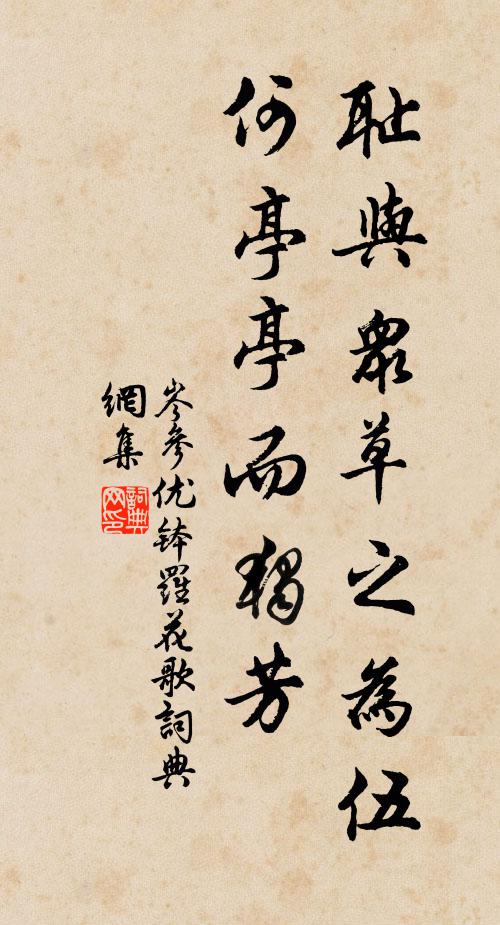 耻與衆草之為伍
何亭亭而獨芳
岑參优钵羅花歌詞典
網集
詞典网印